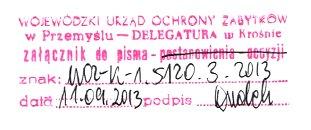 WOJEWÓDZKI URZĄD OCHRONY ZABYTKÓW
w Przemyślu — DELEGATURA w Krośnie
załącznik do pisma - postanowienia - decyzji
znak: UOZ-K-1.5120.3.2013
data 11.09.2013 podpis